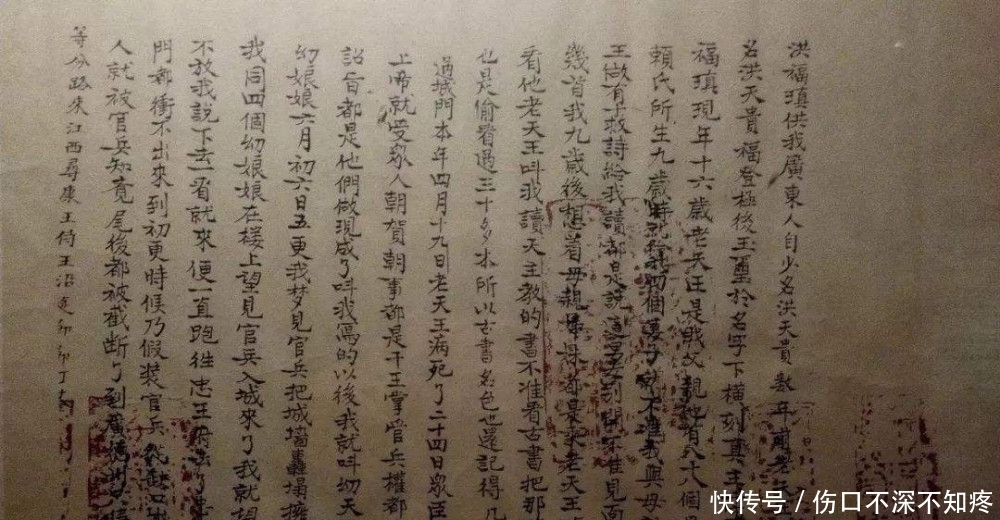 洪福瑱供我廣東人自少名洪天貴數年前老天
名洪天貴福登極後玉璽於名字下橫刻真主
福瑱現年十六歲老天王是我父親他有八十八個
賴氏所生九歲時就給我四個妻子就不准我與母
王做有十救詩給我讀都是說這男女別開不准見面
幾首我九歲後想着母親姊妹都是乘老天王
看他老天王叫我讀天主教的書不准看古書把那
也是偷看過三十多本所以古書名色也還記得几
過城門本年四月十九日老天王病死了二十四日眾臣
上帝就受眾人朝賀朝事都是干王掌管兵權都
詔旨都是他們做現成了叫我寫的以後我就叫幼天
幼娘娘六月初六日五更我梦見官兵把城墻轟塌擁
我同四個幼娘娘在樓上望見官兵入城來了我就望
不放我說下去看就來便一直跑往忠王府去了忠
門都衝不出來到初更時候乃假装官兵從缺口出
人就被官兵知竟尾後都被截断了到廣德州
等分路來江西尋康王侍王沿途
快传号/伤口不深不知疼